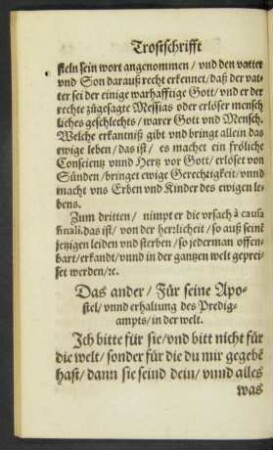 Trostschrifft
steln sein wort angenommen / vnd den vatter
vnd Son darauß recht erkennet / daß der vat-
ter sei der einige warhafftige Gott / vnd er der
rechte zůgesagte Messias oder erlöser mensch
liches geschlechts / warer Gott vnd Mensch.
Welche erkantniß gibt vnd bringt allein das
ewige leben / das ist / es machet ein fröliche
Conscientz vnnd Hertz vor Gott / erlöset von
Sünden / bringet ewige Gerechtigkeit / vnnd
macht vns Erben vnd Kinder des ewigen le-
bens.
Zum dritten / nimpt er die vrsach à causa
finali. das ist / von der herrlicheit / so auß seinẽ
jetzigen leiden vnd sterben / so jederman offen-
bart / erkandt / vnnd in der gantzen welt geprei-
set werden / ꝛc.
Das ander / Für seine Apo-
stel / vnnd erhaltung des Predig-
ampts / in der welt.
Ich bitte für sie / vnd bitt nicht für
die welt / sonder für die du mir gegebẽ
hast / dann sie seind dein / vnnd alles
was